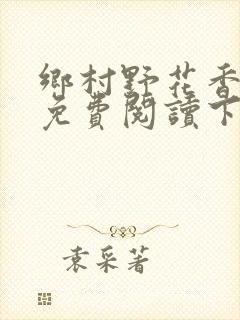 鄉村野花香
免費閱讀下
袁采著